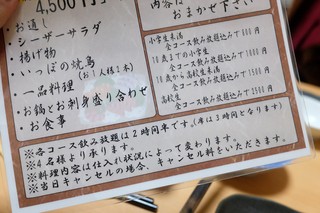 4,500円
内容は
おまかせ下さい
・お通し
・シーザーサラダ
・揚げ物
・いっぽの焼鳥
(お1人様1本)
・一品料理
・お鍋とお刺身盛り合わせ
・お食事
小学生未満
全コース飲み放題込みで
10歳までの小学生
全コース飲み放題込みで
10歳から高校生未満
全コース飲み放題込みで
高校生
全コース飲み放題込みで
※各コース飲み放題は2時間半です。(席は3時間となります)
※4名様より承ります。
※料理内容は仕入れ状況によって変わります。
※当日キャンセルの場合、キャンセル料をいただきます。